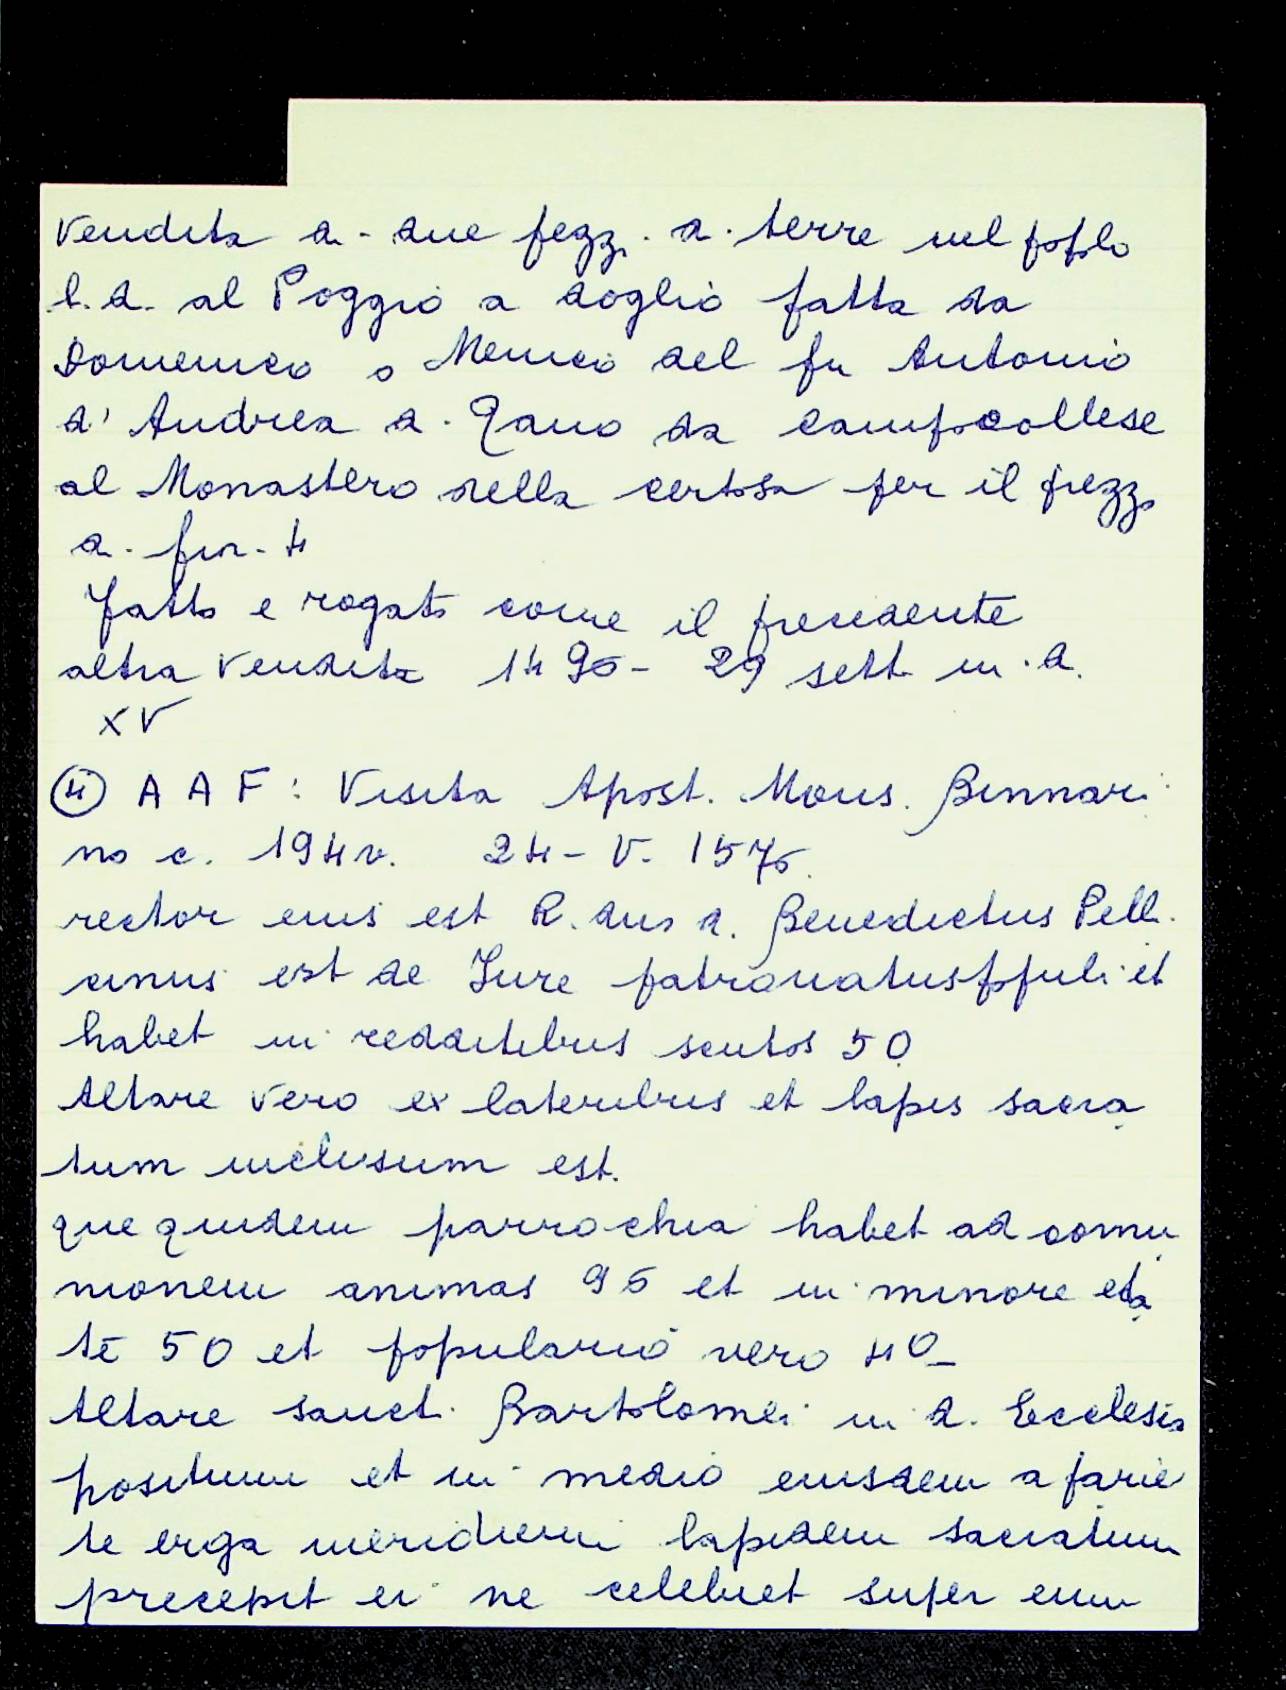 Vendita d. due pezz. d. terre nel popolo
l. d. al Poggio a doglio fatta da
Domenico o Menico del fu Antonio
d'Andrea d. Gano da Campocollese
al Monastero della certosa per il prezzo
d. fior. 4
fatto e rogato come il precedente
altra vendita 1496 - 29 sett. in. d.
XV
④ A A F: Visita Apost. Mons. Binnari
no c. 194v. 24 - V. 1576.
rector eius est R. dns d. Benedictus Pelli
cinus est de Jure patronatus ppuli et
habet in redditibus scutos 50
Altare vero ex lateribus et lapis sacra
tum inclusum est.
que quidem parrochia habet ad comu
nionem animas 95 et in minore eta
te 50 et popularió vero 40 -
Altare sanct. Bartolomei in d. Ecclesia
positum et in medio eiusdem a parie
te erga meridiem lapidem sacratum
precepit ei ne celebret super eum